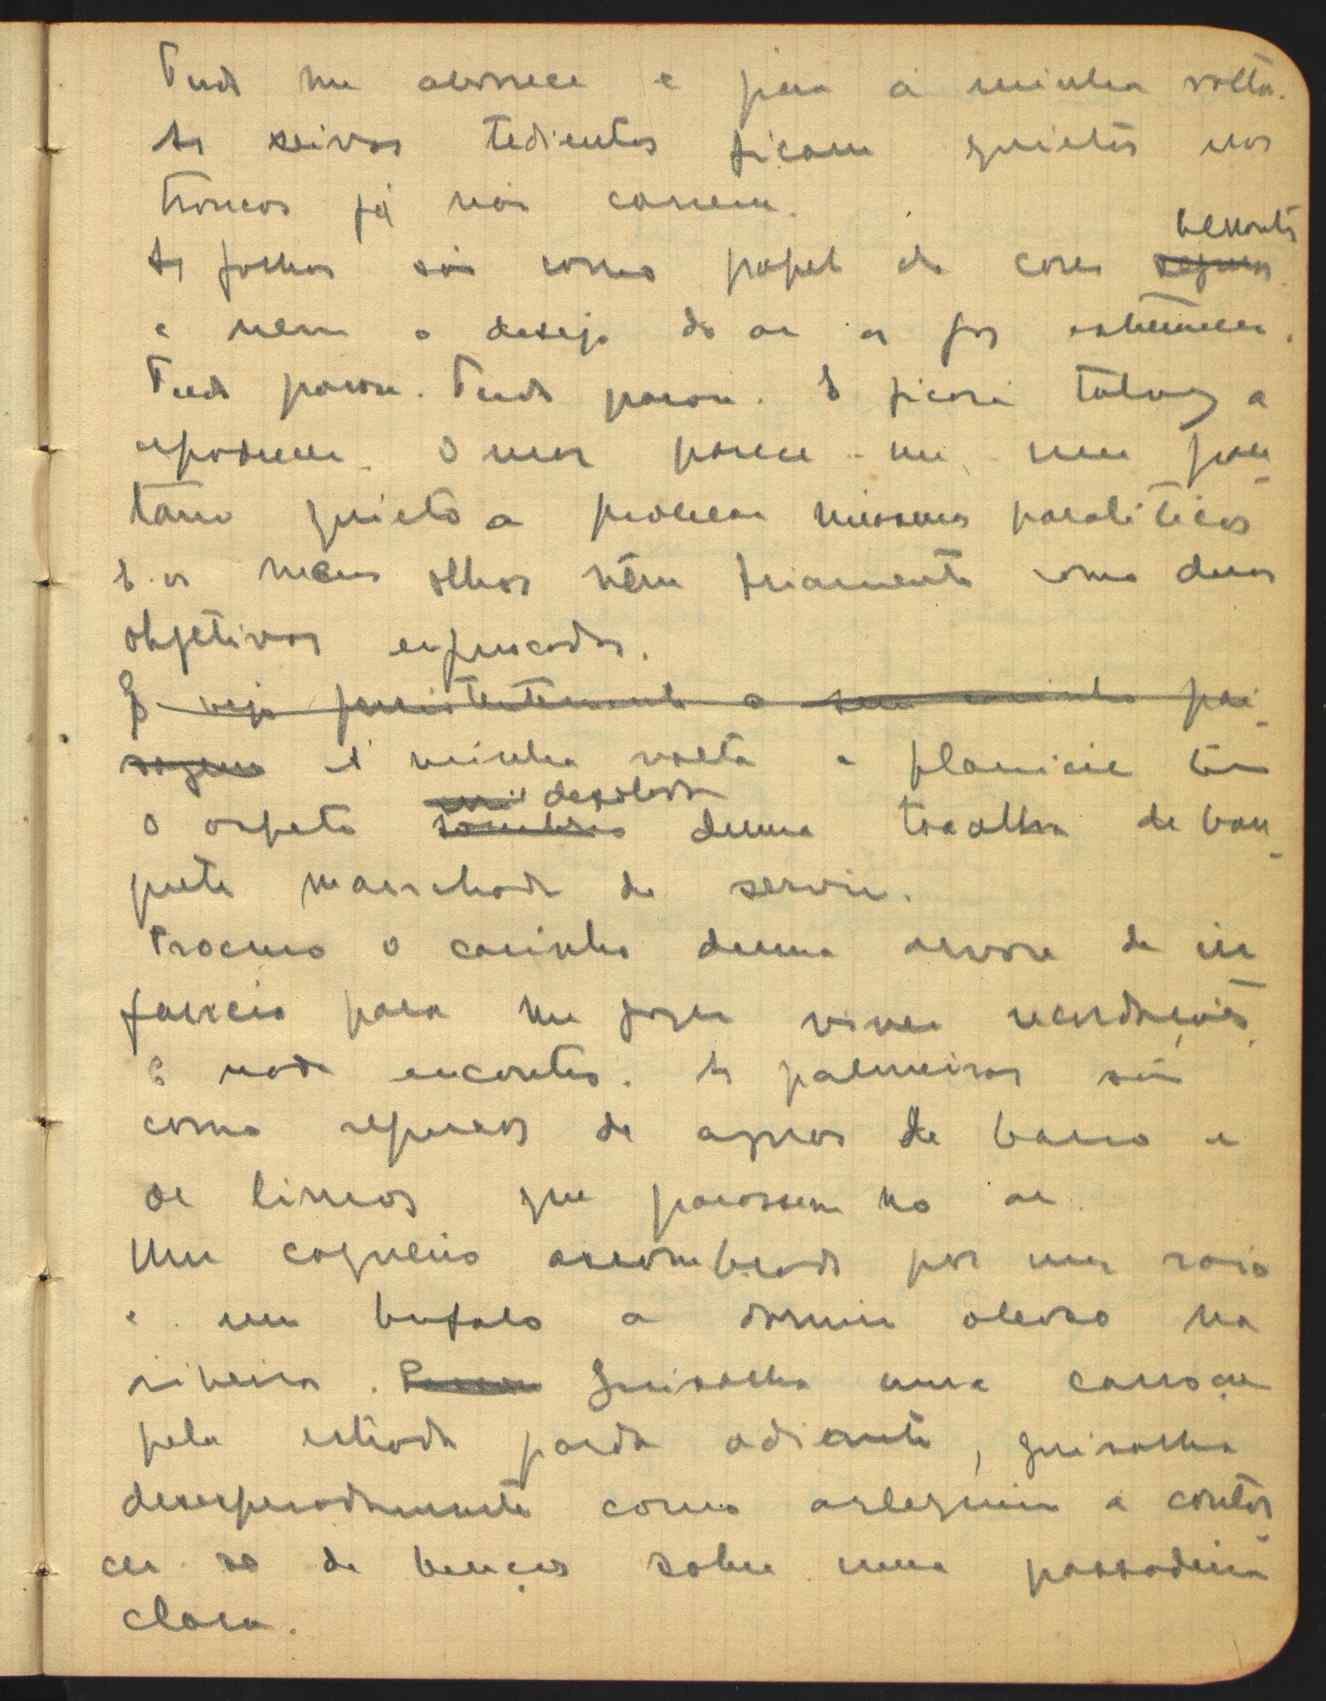 Tudo me aborrece e pára á minha volta.
As seivas tedientas ficam quietas nos
troncos já não correm.
As folhas são como papel de cores
e nem o desejo do ar as faz estremecer.
Tudo parou. Tudo parou. E ficará talvez a
apodrecer. O mar parece-me um pan-
tano quieto a procrear miasmas paraliticos
E os meus olhos vêm friamente como duas
objetivas enfuscadas.
E vejo persistentemente o seu caminho pai-
sagem Á minha volta a planicie tem
o aspeto sombrio desolado duma toalha de ban-
quete manchada de servir.
Procuro o carinho duma arvore de in
fancia para me fazer viver recordações
E nada encontro. As palmeiras são
como repuxos de aguas de barro e
de limos que parassem no ar
Um coqueiro assombrado por um raio
e um bufalo a dormir absorto na
ribeira. Guisalha uma carroça
pela estrada parda adiante, guisalha
desesperadamente como arlequim a contor-
cer-se de bruços sobre uma passadeira
clara.